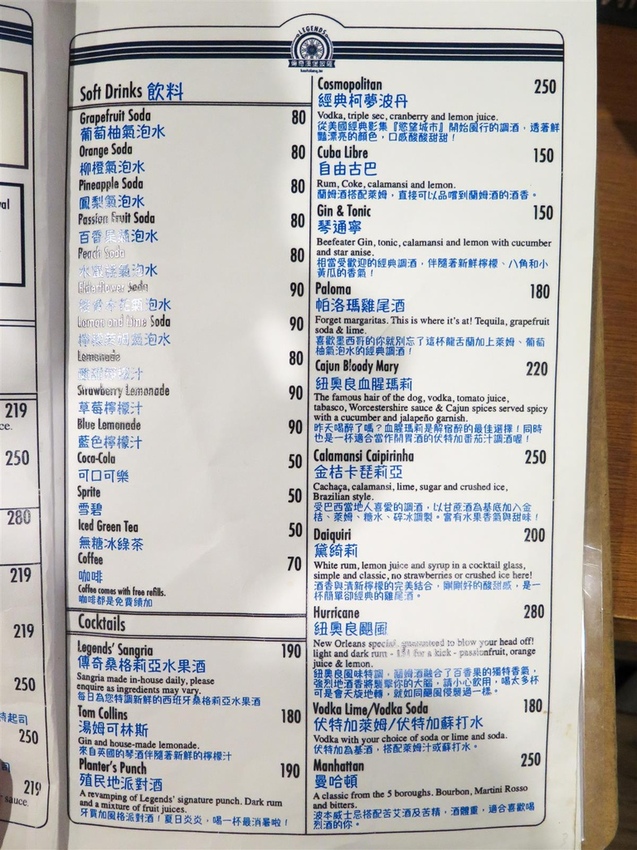 LEGENDS
傳奇漢堡餐廳
Soft Drinks 飲料
Grapefruit Soda 80
葡萄柚氣泡水
Orange Soda 80
柳橙氣泡水
Pineapple Soda 80
鳳梨氣泡水
Passion Fruit Soda 80
百香果氣泡水
Peach Soda 80
水蜜桃氣泡水
Elderflower Soda 90
氣泡水
Lemon and Lime Soda 90
氣泡水
Lemonade 80
檸檬汁
Strawberry Lemonade 90
草莓檸檬汁
Blue Lemonade 90
藍色檸檬汁
Coca-Cola 50
可口可樂
Sprite 50
雪碧
Iced Green Tea 50
無糖冰綠茶
Coffee 70
咖啡
Coffee comes with free refills.
咖啡都是免費續加
Cocktails
Legends' Sangria 190
傳奇桑格莉亞水果酒
Sangria made in-house daily, please
enquire as ingredients may vary.
每日為您特調新鮮的西班牙桑格莉亞水果酒
Tom Collins 180
湯姆可林斯
Gin and house-made lemonade.
來自英國的琴酒伴隨著新鮮的檸檬汁
Planter's Punch 190
殖民地派對酒
A revamping of Legends' signature punch. Dark rum
and a mixture of fruit juices.
牙買加風格派對酒！夏日炎炎，喝一杯最消暑啦！
Cosmopolitan 250
經典柯夢波丹
Vodka, triple sec, cranberry and lemon juice.
從美國經典影集『慾望城市』開始風行的調酒，透著鮮
豔漂亮的顏色，口感酸酸甜甜！
Cuba Libre 150
自由古巴
Rum, Coke, calamansi and lemon.
蘭姆酒搭配萊姆，直接可以品嚐到蘭姆酒的酒香。
Gin & Tonic 150
琴通寧
Beefeater Gin, tonic, calamansi and lemon with cucumber
and star anise.
相當受歡迎的經典調酒，伴隨著新鮮檸檬、八角和小
黃瓜的香氣！
Paloma 180
帕洛瑪雞尾酒
Forget margaritas. This is where it's at! Tequila, grapefruit
soda & lime.
喜歡墨西哥的你就別忘了這杯龍舌蘭加上萊姆、葡萄
柚氣泡水的經典調酒！
Cajun Bloody Mary 220
紐奧良血腥瑪莉
The famous hair of the dog, vodka, tomato juice,
tabasco, Worcestershire sauce & Cajun spices served spicy
with a cucumber and jalapeño garnish.
昨天喝醉了嗎？血腥瑪莉是解宿醉的最佳選擇！同時
也是一杯適合當作開胃酒的伏特加番茄汁調酒喔！
Calamansi Caipirinha 250
金桔卡琵莉亞
Cachaça, calamansi, lime, sugar and crushed ice,
Brazilian style.
受巴西當地人喜愛的調酒，以甘蔗酒為基底加入金
桔、萊姆、糖水、碎冰調製。富有水果香氣與甜味！
Daiquiri 200
黛綺莉
White rum, lemon juice and syrup in a cocktail glass,
simple and classic, no strawberries or crushed ice here!
酒香與清新檸檬的完美結合，剛剛好的酸甜感，是一
杯簡單卻經典的雞尾酒。
Hurricane 280
紐奧良颶風
New Orleans special, guaranteed to blow your head off!
light and dark rum - for a kick - passionfruit, orange
juice & lemon.
紐奧良風味特調，蘭姆酒融合了百香果的獨特香氣，
強烈地酒香將襲擊你的大腦，請小心飲用，喝太多杯
可是會天旋地轉，就如同颶風侵襲過一樣。
Vodka Lime/Vodka Soda 180
伏特加萊姆/伏特加蘇打水
Vodka with your choice of soda or lime and soda.
伏特加為基酒，搭配萊姆汁或蘇打水。
Manhattan 250
曼哈頓
A classic from the 5 boroughs. Bourbon, Martini Rosso
and bitters.
波本威士忌搭配苦艾酒及苦精，酒體重，適合喜歡喝
烈酒的你。
219
250
280
219
219
250
250
219
sauce.